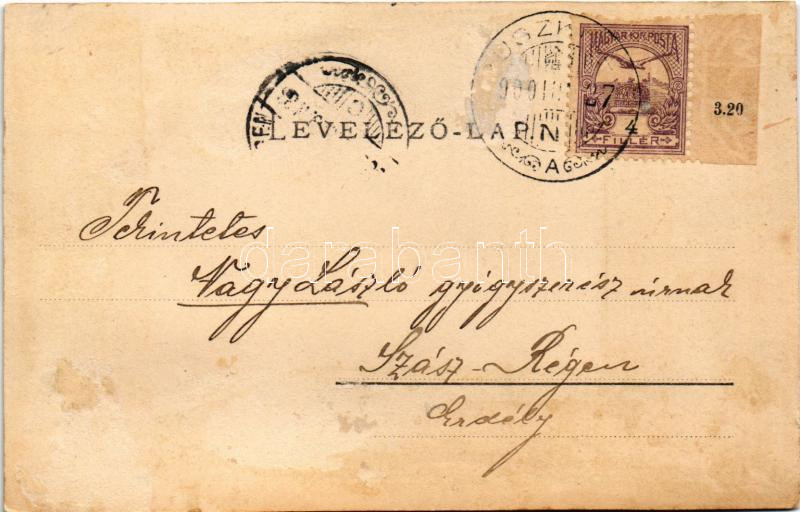 LEVELEZŐ-LAP
MAGYAR KIR. POSTA
4
FILLÉR
3.20
Tekintetes
Nagy László gyógyszerész úrnak
Szász-Régen
Erdély
darabanth